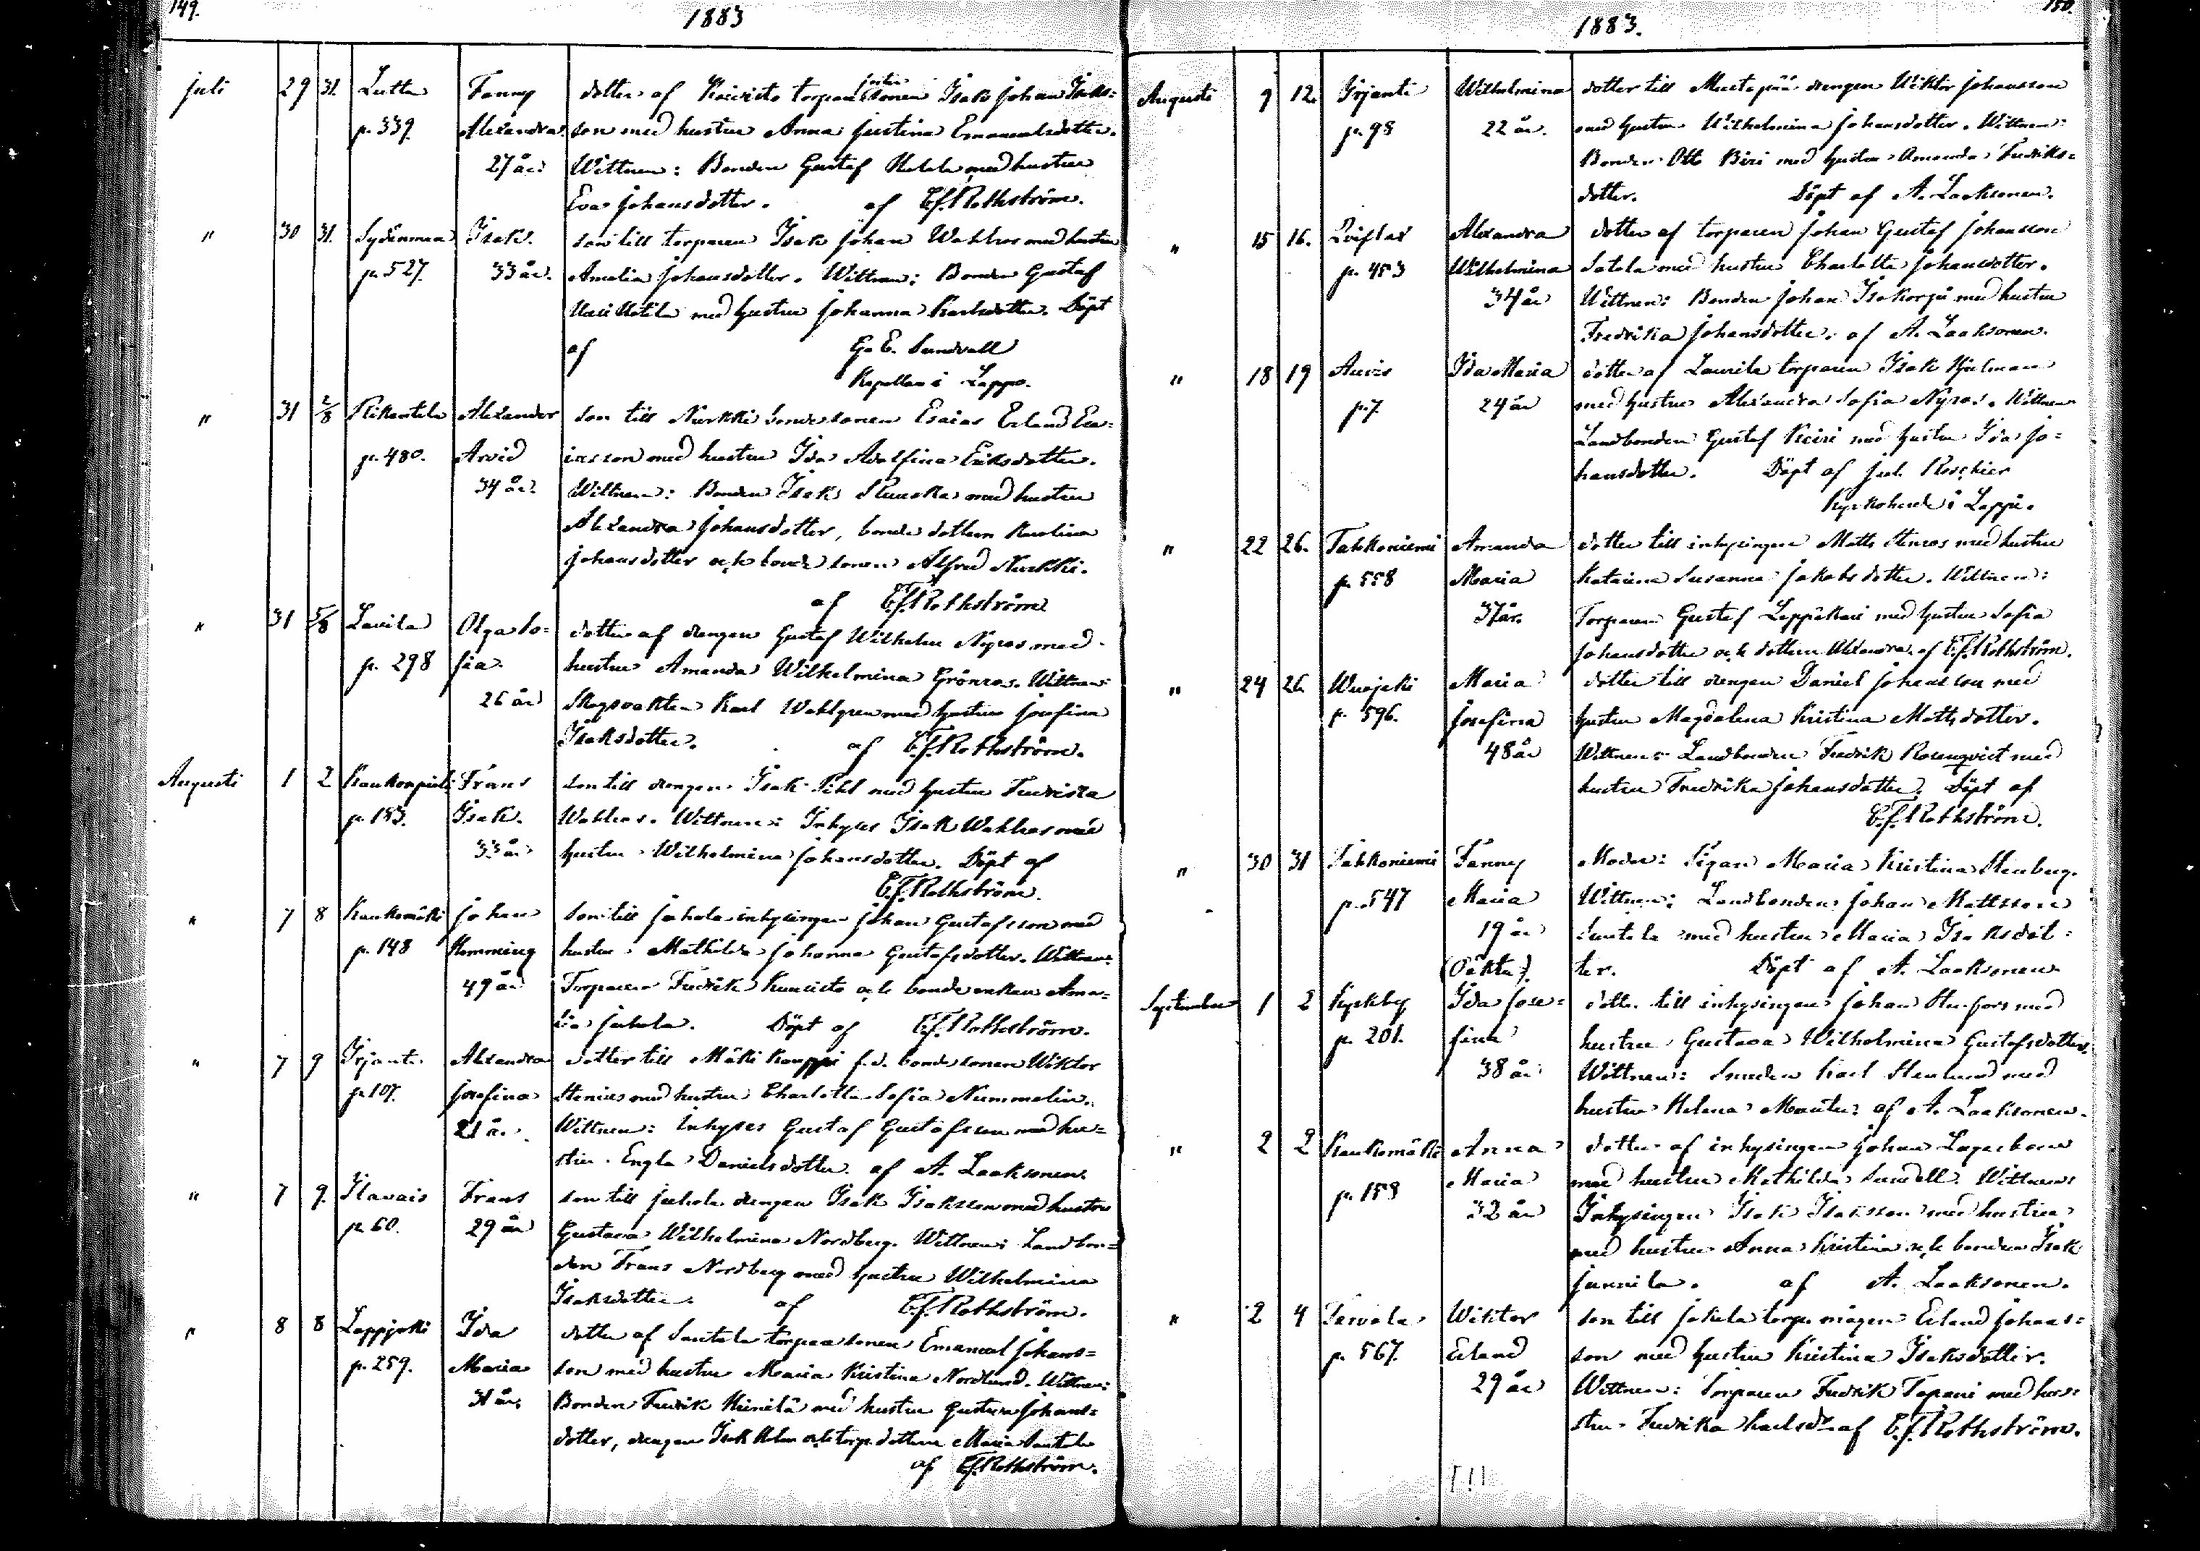 149.
1883
juli 29 31. Lutta Fanny dotter af Koivisto torpare sonen Isak Johan Isaks=
p. 339. Alexandra son med hustru Anna Justina Emanuelsdotter.
27 år. Wittnen: Bonden Gustaf Uotila med hustru
Eva Johansdotter. af E.f. Rothström.
" 30 31. Sydänmaa Isak. son till torparen Isak Johan Wahlros med hustru
p. 527. 33 år. Amalia Johansdotter. Wittnen: Bonden Gustaf
Uusi Uotila med hustru Johanna Karlsdotter. Döpt
af G. E. Sundvall
Kapellan i Lappo.
" 31 2/8 Alexander son till Nurkki bondesonen Esaias Erland Esa=
p. 480. Arvid iasson med hustru Ida Adolfina Eriksdotter.
34 år. Wittnen: Bonden Isak med hustru
Alexandra Johansdotter, bonde dottern Karolina
Johansdotter och bonde sonen Alfred Nurkki.
af E.f. Rothström
" 31 5/8 Laurila Olga So= dotter af drengen Gustaf Wilhelm Nyros med
p. 298 fia. hustru Amanda Wilhelmina Grönroos. Wittnen:
26 år Skogsvakten Karl Wahlgren med hustru Josefina
Isaksdotter. af E.f. Rothström.
Augusti 1 2 Kaukonpieli Frans son till drengen Isak Pihl med hustru Fredrika
p. 183. Isak. Wahlros. Wittnen: Inhyses Isak Wahlros med
33 år hustru Wilhelmina Johansdotter. Döpt af
E.f. Rothström.
" 7 8 Kaukomäki Johan son till Juhola inhysingen Johan Gustafsson med
p. 148 Hemming hustru Mathilda Johanna Gustafsdotter. Wittnen:
49 år Torparen Fredrik Kunnisto och bonde enkan Ama=
lia Juhola. Döpt af E.f. Rothström.
" 7 9 Irjanti Alexandra dotter till Mäki Kauppi f.d. bonde sonen Wiktor
p. 107. Josefina Stenius med hustru Charlotta Sofia Nummelin.
21 år. Wittnen: Inhyses Gustaf Gustafsson med hu=
stru Engla Danielsdotter. af A. Laaksonen.
" 7 9. Ilavais Frans son till Juhola drengen Isak Isaksson med hustru
p. 60. 29 år Gustava Wilhelmina Nordberg. Wittnen: Landbon=
den Frans Nordberg med hustru Wilhelmina
Isaksdotter. af E.f. Rothström.
" 8 8 Lappijoki Ida dotter af Santala torpare sonen Emanuel Johans=
p. 259. Maria son med hustru Maria Kristina Nordlund. Wittnen:
31 år. Bonden Fredrik Heinilä med hustru Gustava Johans=
dotter, drengen Isak Holm och torp. dottern Maria Santala
af E.f. Rothström.
150.
1883.
Augusti 9 12. Irjanti Wilhelmina dotter till Mustapää drengen Wiktor Johansson
p. 98 22 år. med hustru Wilhelmina Johansdotter. Wittnen:
Bonden Otto Biri med hustru Amanda Fredriks=
dotter. Döpt af A. Laaksonen.
" 15 16. Alexandra dotter af torparen Johan Gustaf Johansson
p. 453 Wilhelmina Satola med hustru Charlotta Johansdotter.
34 år Wittnen: Bonden Johan Isokorpi med hustru
Fredrika Johansdotter. af A. Laaksonen.
" 18 19 Auvis Ida Maria dotter af Laurila torparen Isak Hjelman
p. 7. 24 år med hustru Alexandra Sofia Nyros. Wittnen
Landbonden Gustaf Keisi med hustru Ida Jo=
hansdotter. Döpt af Jul. Roschier
Kyrkoherde i Lappi.
" 22 26. Tahkoniemi Amanda dotter till inhysingen Matts Stenros med hustru
p. 558 Maria Katarina Susanna Jakobsdotter. Wittnen:
37 år. Torparen Gustaf Leppäkari med hustru Sofia
Johansdotter och dottern Alexandra. af E.f. Rothström.
" 24 26. Wuojoki Maria dotter till drengen Daniel Johansson med
p. 596. Josefina hustru Magdalena Kristina Mattsdotter.
48 år Wittnen: Landbonden Fredrik Rosenqvist med
hustru Fredrika Johansdotter. Döpt af
E.f. Rothström.
" 30 31 Tahkoniemi Fanny Moder: Pigan Maria Kristina Stenberg.
p. 547 Maria Wittnen: Landbonden Johan Mattsson
19 år Santala med hustru Maria Isaksdot=
(Oäkta). ter. Döpt af A. Laaksonen
September 1 2 Kyrkby Ida Jose= dotter till inhysingen Johan Stenfors med
p. 201. fina hustru Gustava Wilhelmina Gustafsdotter.
38 år Wittnen: Smeden Karl Stenlund med
hustru Helena af A. Laaksonen.
" 2 2 Kaukomäki Anna dotter af inhysingen Johan Lagerbom
p. 158 Maria med hustru Mathilda Sundell. Wittnen:
32 år Inhysingen Isak Isaksson med hustru
med hustru Anna Kristina och bonden Isak
Junnila. af A. Laaksonen.
" 2 4 Tarvola Wiktor son till Jokela torpe mågen Erland Johans=
p. 567. Erland son med hustru Kristina Isaksdotter.
29 år Wittnen: Torparen Fredrik Tapani med hu=
stru Fredrika Karlsdr af E.f. Rothström.